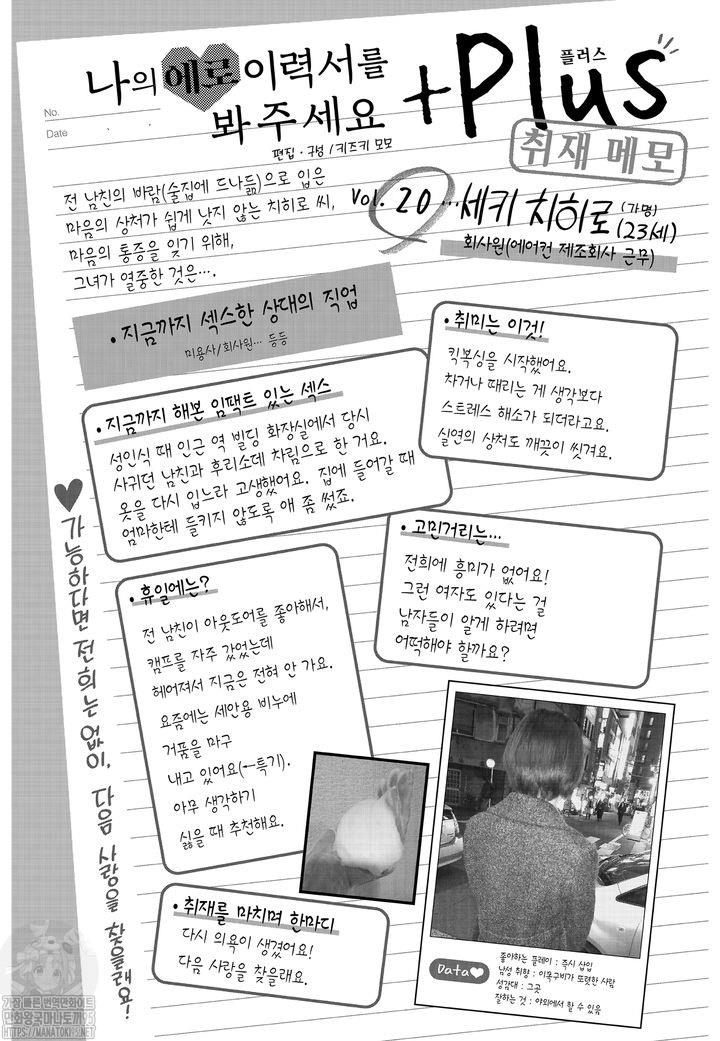 나의 에로 이력서를
봐 주세요
+Plus
플러스
취재 메모
No.
Date
편집 · 구성 / 키즈키 모모
전 남친의 바람(술집에 드나듦)으로 입은
마음의 상처가 쉽게 낫지 않는 치히로 씨,
마음의 통증을 잊기 위해,
그녀가 열중한 것은….
Vol. 20 … 세키 치히로 (가명)
(23세)
회사원(에어컨 제조회사 근무)
• 지금까지 섹스한 상대의 직업
미용사/회사원… 등등
• 취미는 이것!
킥복싱을 시작했어요.
차거나 때리는 게 생각보다
스트레스 해소가 되더라고요.
실연의 상처도 깨끗이 씻겨요.
• 지금까지 해본 임팩트 있는 섹스
성인식 때 인근 역 빌딩 화장실에서 당시
사귀던 남친과 후리소데 차림으로 한 거요.
옷을 다시 입느라 고생했어요. 집에 들어갈 때
엄마한테 들키지 않도록 애 좀 썼죠.
• 고민거리는…
전희에 흥미가 없어요!
그런 여자도 있다는 걸
남자들이 알게 하려면
어떡해야 할까요?
• 휴일에는?
전 남친이 아웃도어를 좋아해서,
캠프를 자주 갔었는데
헤어져서 지금은 전혀 안 가요.
요즘에는 세안용 비누에
거품을 마구
내고 있어요(←특기).
아무 생각하기
싫을 때 추천해요.
♥가능하다면 전희는 없이, 다음 사랑을 찾을래요!
• 취재를 마치며 한마디
다시 의욕이 생겼어요!
다음 사랑을 찾을래요.
Data♥
좋아하는 플레이 : 즉시 삽입
남성 취향 : 이목구비가 또렷한 사람
성감대 : 그곳
잘하는 것 : 야외에서 할 수 있음
가장 빠른 번역만화 사이트
만화왕국 마나토끼95
HTTPS://MANATOKI95.NET